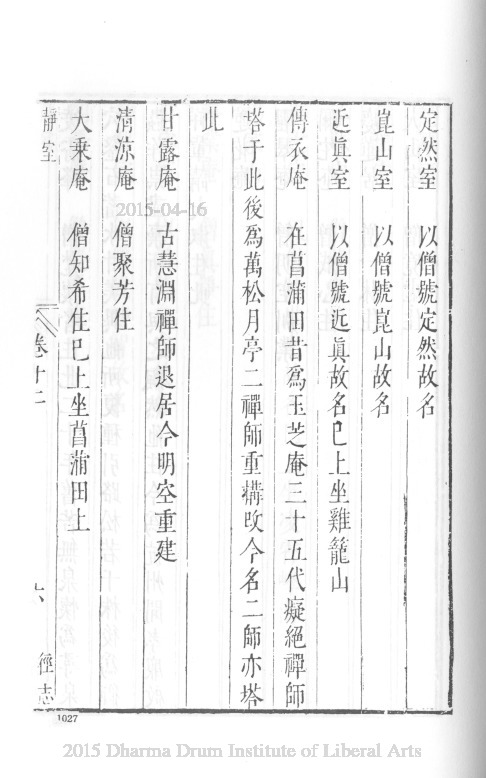 定然室　以僧號定然故名
崑山室　以僧號崑山故名
近眞室　以僧號近眞故名已上坐雞籠山
傳衣庵　在菖蒲田昔爲玉芝庵三十五代癡絕禪師
塔于此後爲萬松月亭二禪師重搆改今名二師亦塔
此
甘露庵　古慧淵禪師退居今明空重建
清涼庵　僧聚芳住
大乘庵　僧知希住已上坐菖蒲田上
靜室
卷十二
六
徑志
1027
2015-04-16
2015 Dharma Drum Institute of Liberal Arts